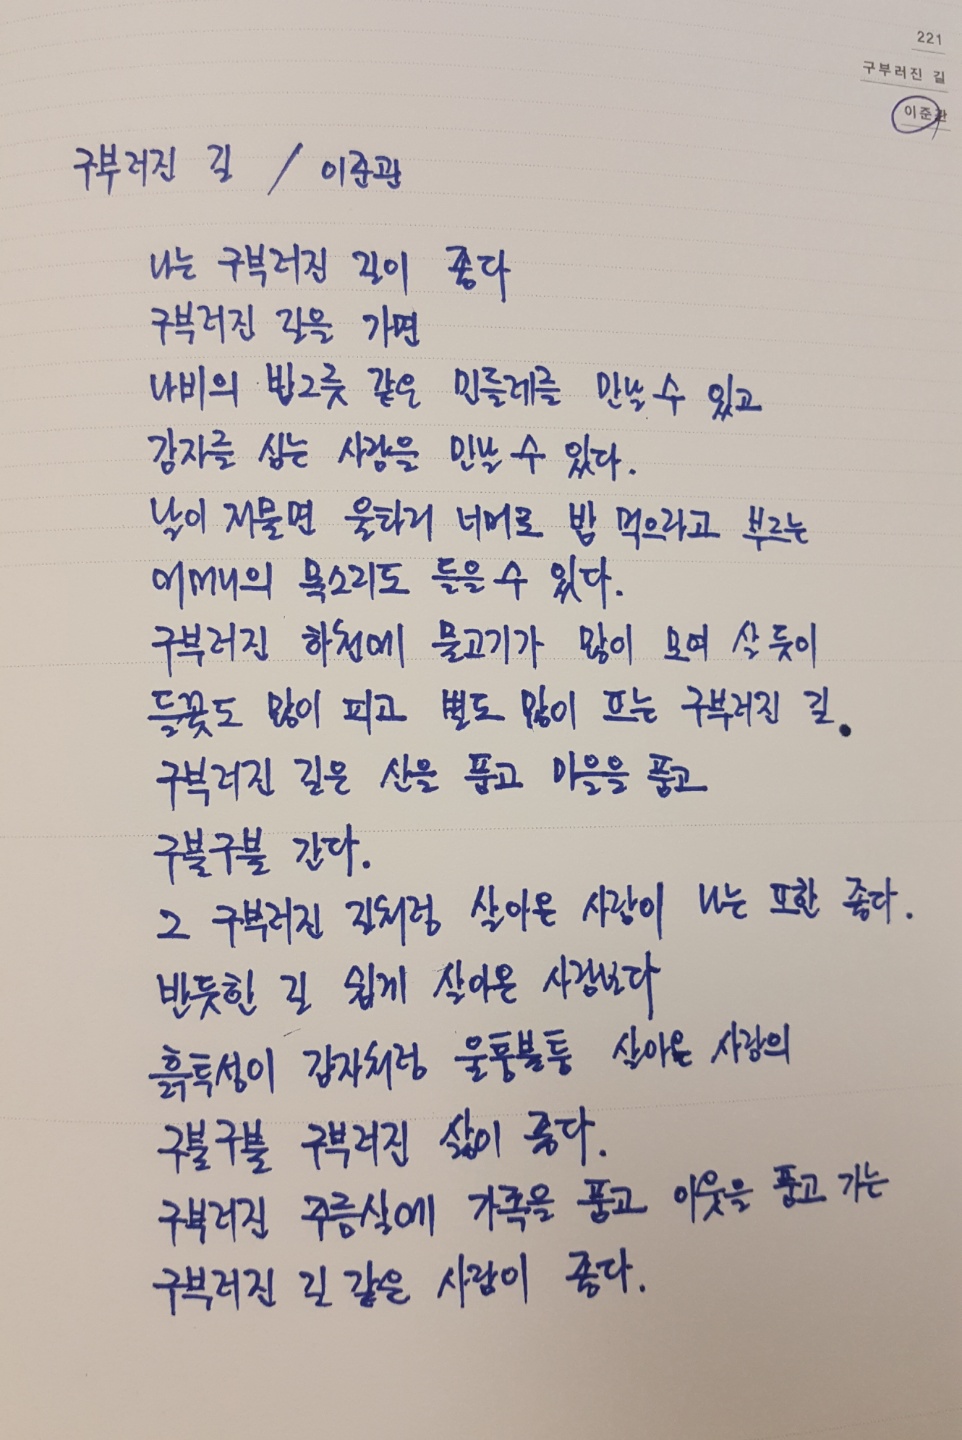 221
구부러진 길
이준관
구부러진 길 / 이준관
나는 구부러진 길이 좋다
구부러진 길을 가면
나비의 밥그릇 같은 민들레를 만날 수 있고
감자를 심는 사람을 만날 수 있다.
날이 저물면 울타리 너머로 밥 먹으라고 부르는
어머니의 목소리도 들을 수 있다.
구부러진 하천에 물고기가 많이 모여 살듯이
들꽃도 많이 피고 별도 많이 뜨는 구부러진 길.
구부러진 길은 산을 품고 마을을 품고
구불구불 간다.
그 구부러진 길처럼 살아온 사람이 나는 또한 좋다.
반듯한 길 쉽게 살아온 사람보다
흙투성이 감자처럼 울퉁불퉁 살아온 사람의
구불구불 구부러진 삶이 좋다.
구부러진 주름살에 가족을 품고 이웃을 품고 가는
구부러진 길 같은 사람이 좋다.